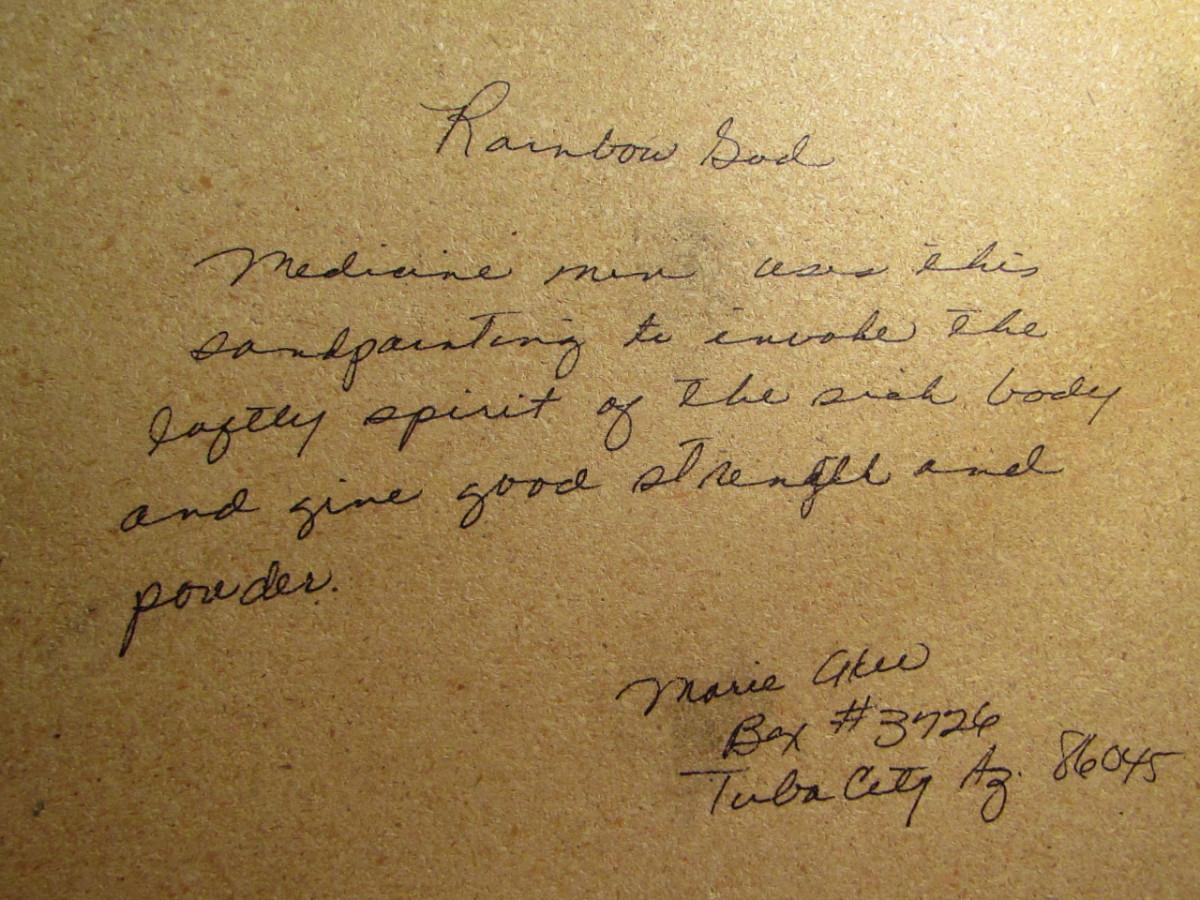 Rainbow God
Medicine men uses this
sandpainting to invoke the
loftly spirit of the sick body
and give good strength and
powder.
Marie
Box #3726
Tuba City Az. 86045